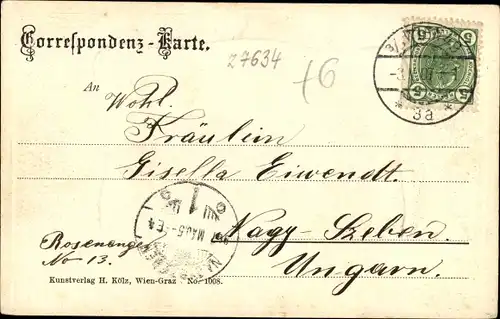 Correspondenz-Karte.
27634
+6
5 5
3/1
3a
An
Wohl.
Fräulein
Gisella Eiwendt.
Nagy-Szeben.
Rosenanger
No 13.
Ungarn.
Kunstverlag H. Kölz, Wien-Graz No. 1008.